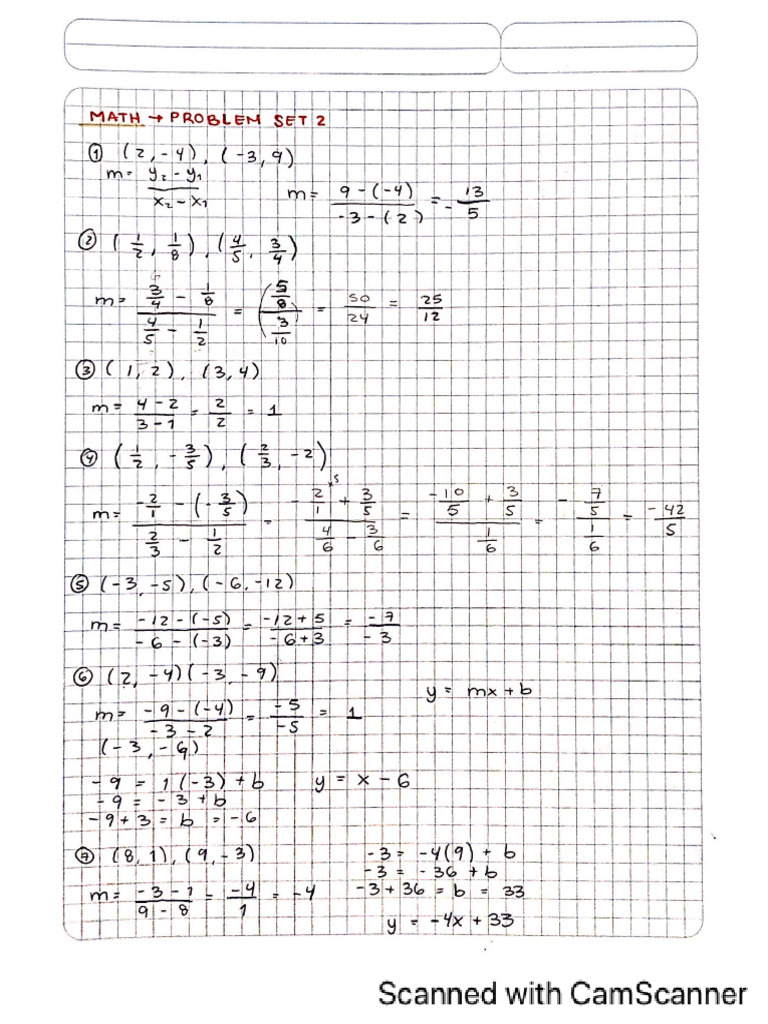 MATH → PROBLEM SET 2
① (2, -4), (-3, 9)
m = (y₂ - y₁)/(x₂ - x₁)    m = (9 - (-4))/(-3 - (2)) = - 13/5
② (1/2, 1/8), (4/5, 3/4)
m = (3/4 - 1/8)/(4/5 - 1/2) = (5/8)/(3/10) = 50/24 = 25/12
③ (1, 2), (3, 4)
m = (4 - 2)/(3 - 1) = 2/2 = 1
④ (1/2, - 3/5), (2/3, -2)
m = (-2/1 - (-3/5))/(2/3 - 1/2) = (- 2/1 ×5 + 3/5)/(4/6 - 3/6) = (-10/5 + 3/5)/(1/6) = (- 7/5)/(1/6) = -42/5
⑤ (-3, -5), (-6, -12)
m = (-12 - (-5))/(-6 - (-3)) = (-12 + 5)/(-6 + 3) = -7/-3
⑥ (2, -4)(-3, -9)    y = mx + b
m = (-9 - (-4))/(-3 - 2) = -5/-5 = 1
(-3, -9)
-9 = 1(-3) + b    y = x - 6
-9 = -3 + b
-9 + 3 = b = -6
⑦ (8, 1), (9, -3)
m = (-3 - 1)/(9 - 8) = -4/1 = -4
-3 = -4(9) + b
-3 = -36 + b
-3 + 36 = b = 33
y = -4x + 33
Scanned with CamScanner